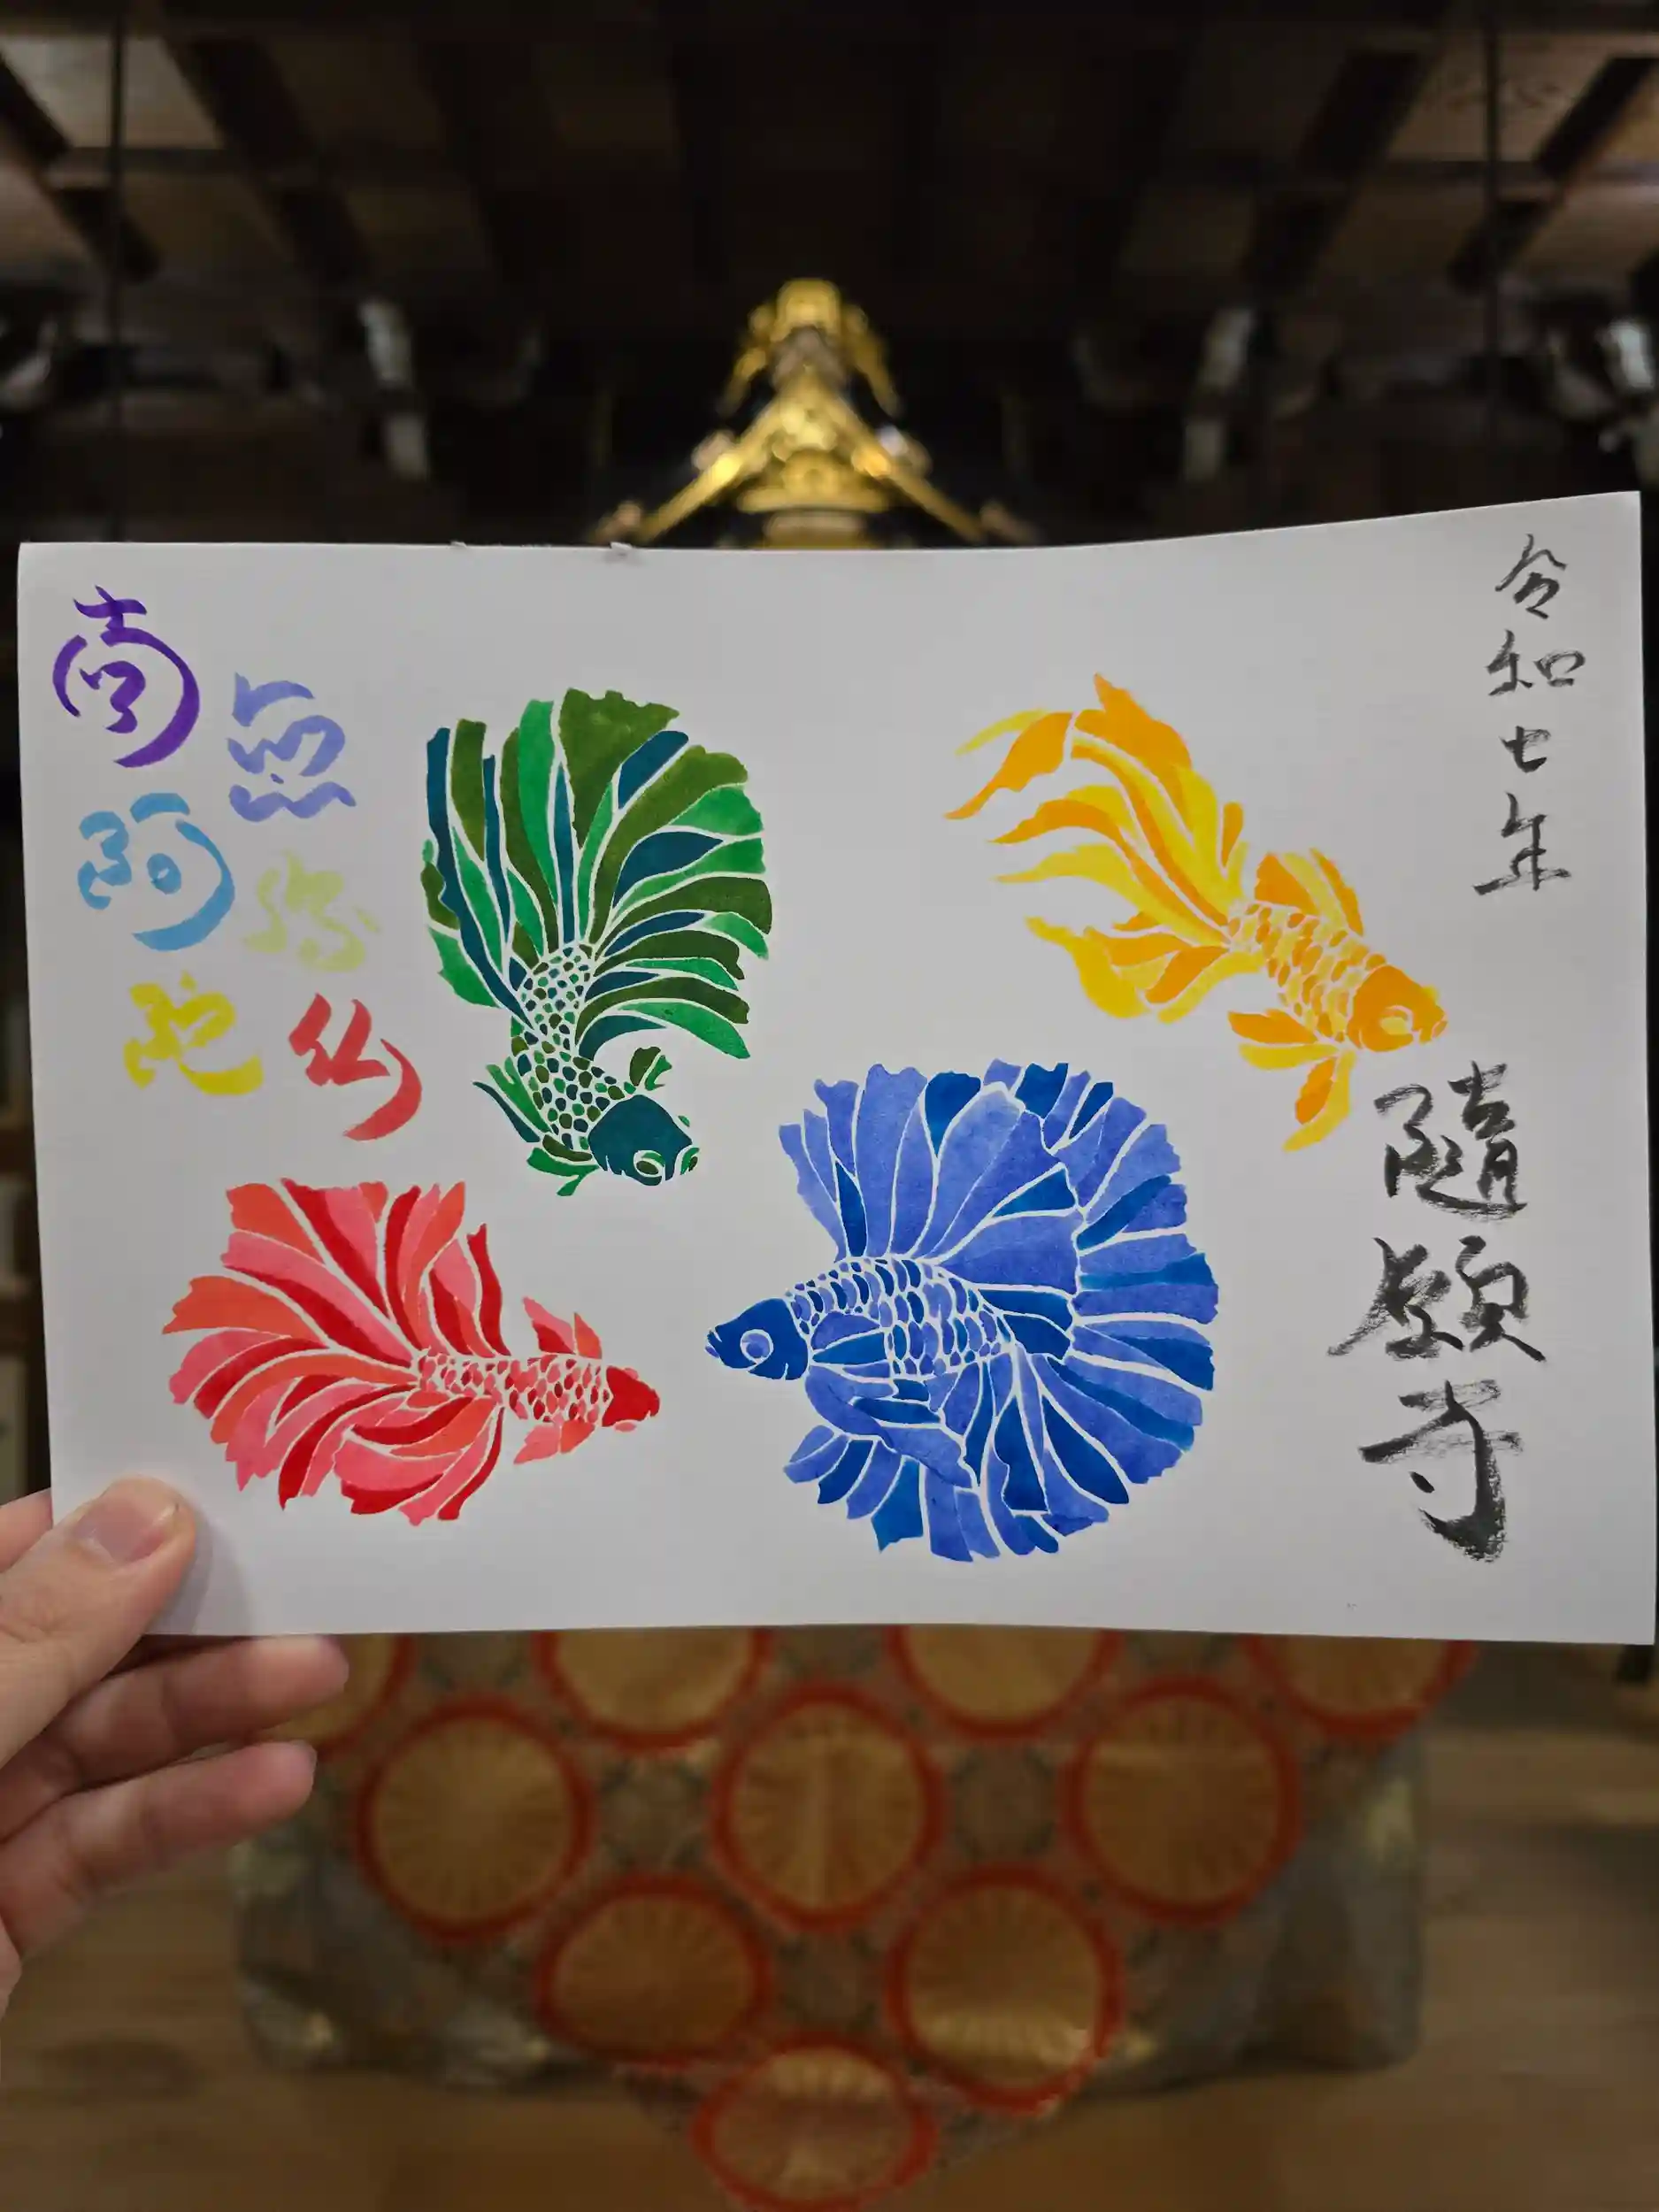 令和七年
隨願寺
南無阿弥陀仏